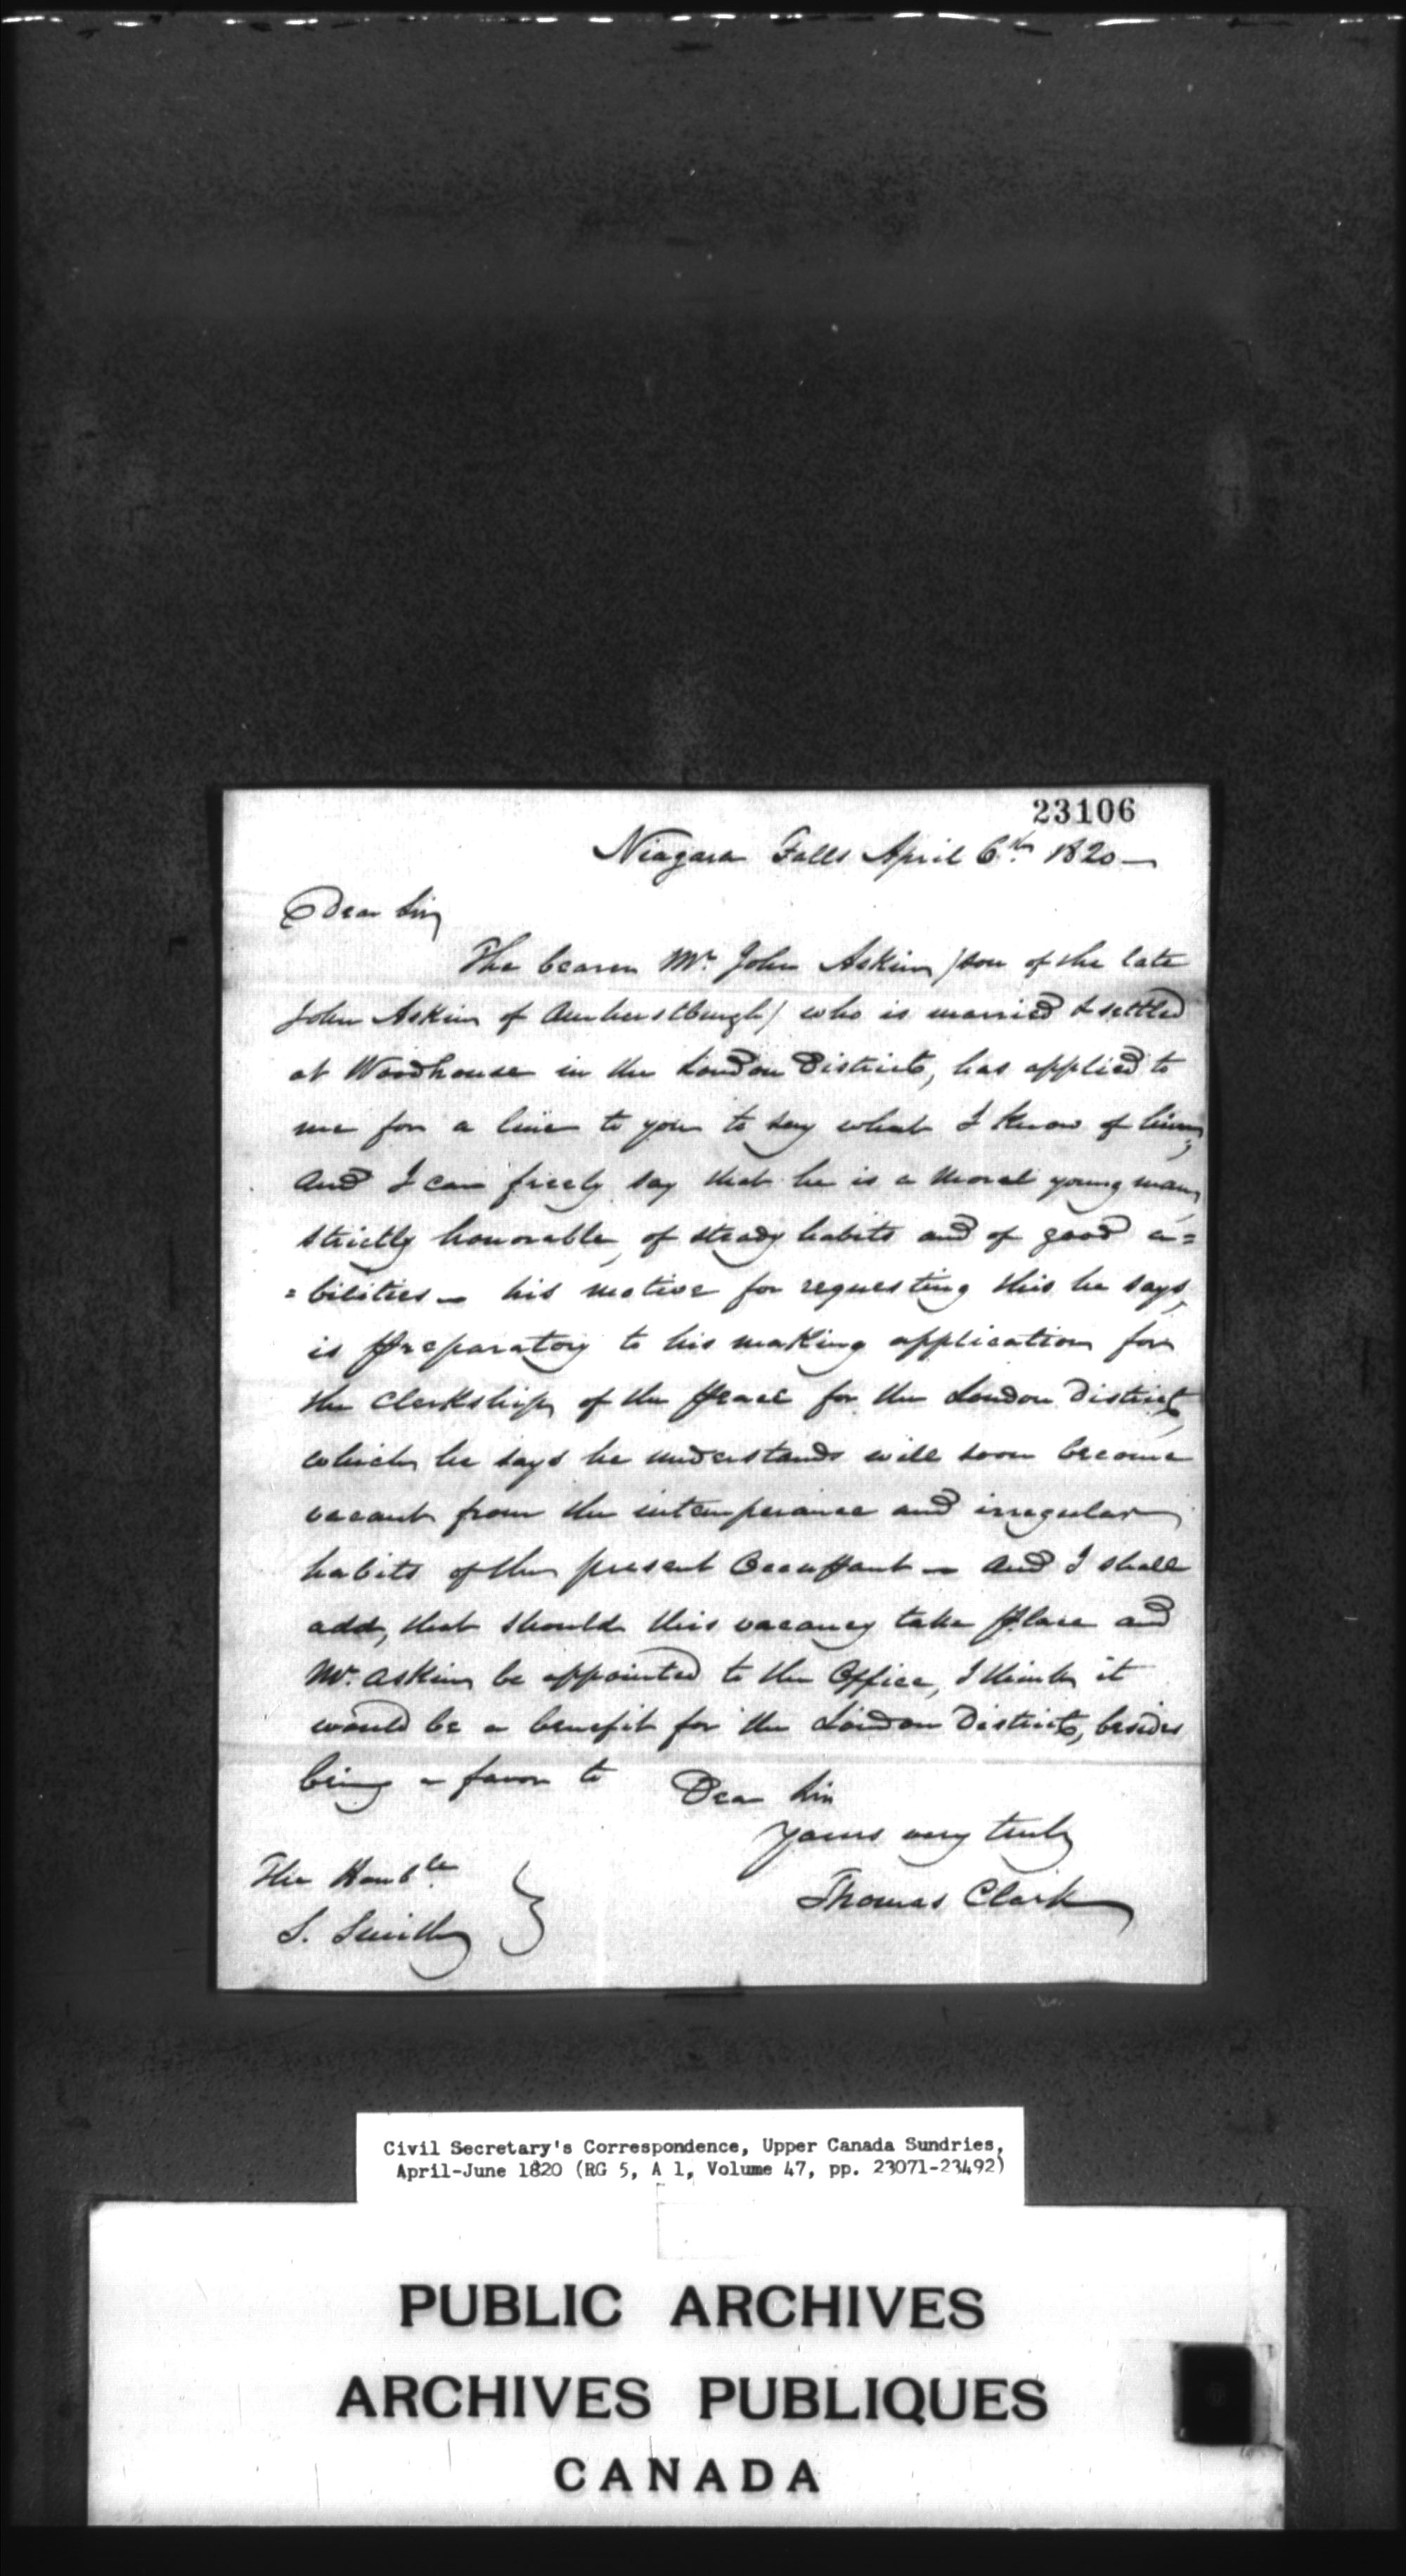 23106
Niagara Falls April 6th. 1820—
Dear Sir,
The bearer Mr. John Askin /son of the late
John Askin of Amherstburgh/ who is married & settled
at Woodhouse in the London District, has applied to
me for a line to you to say what I know of him;
and I can freely say that he is a moral young man,
strictly honorable, of steady habits and of good a=
=bilities — his motive for requesting this he says,
is preparatory to his making application for
the Clerkship of the Peace for the London District,
which he says he understands will soon become
vacant from the intemperance and irregular
habits of the present Occupant — and I shall
add, that should this vacancy take place and
Mr. Askin be appointed to the Office, I think it
would be a benefit for the London District, besides
being a favor to Dear Sir
Yours very truly
Thomas Clark
The Honble.
S. Smith }
Civil Secretary's Correspondence, Upper Canada Sundries,
April-June 1820 (RG 5, A 1, Volume 47, pp. 23071-23492)
PUBLIC ARCHIVES
ARCHIVES PUBLIQUES
CANADA